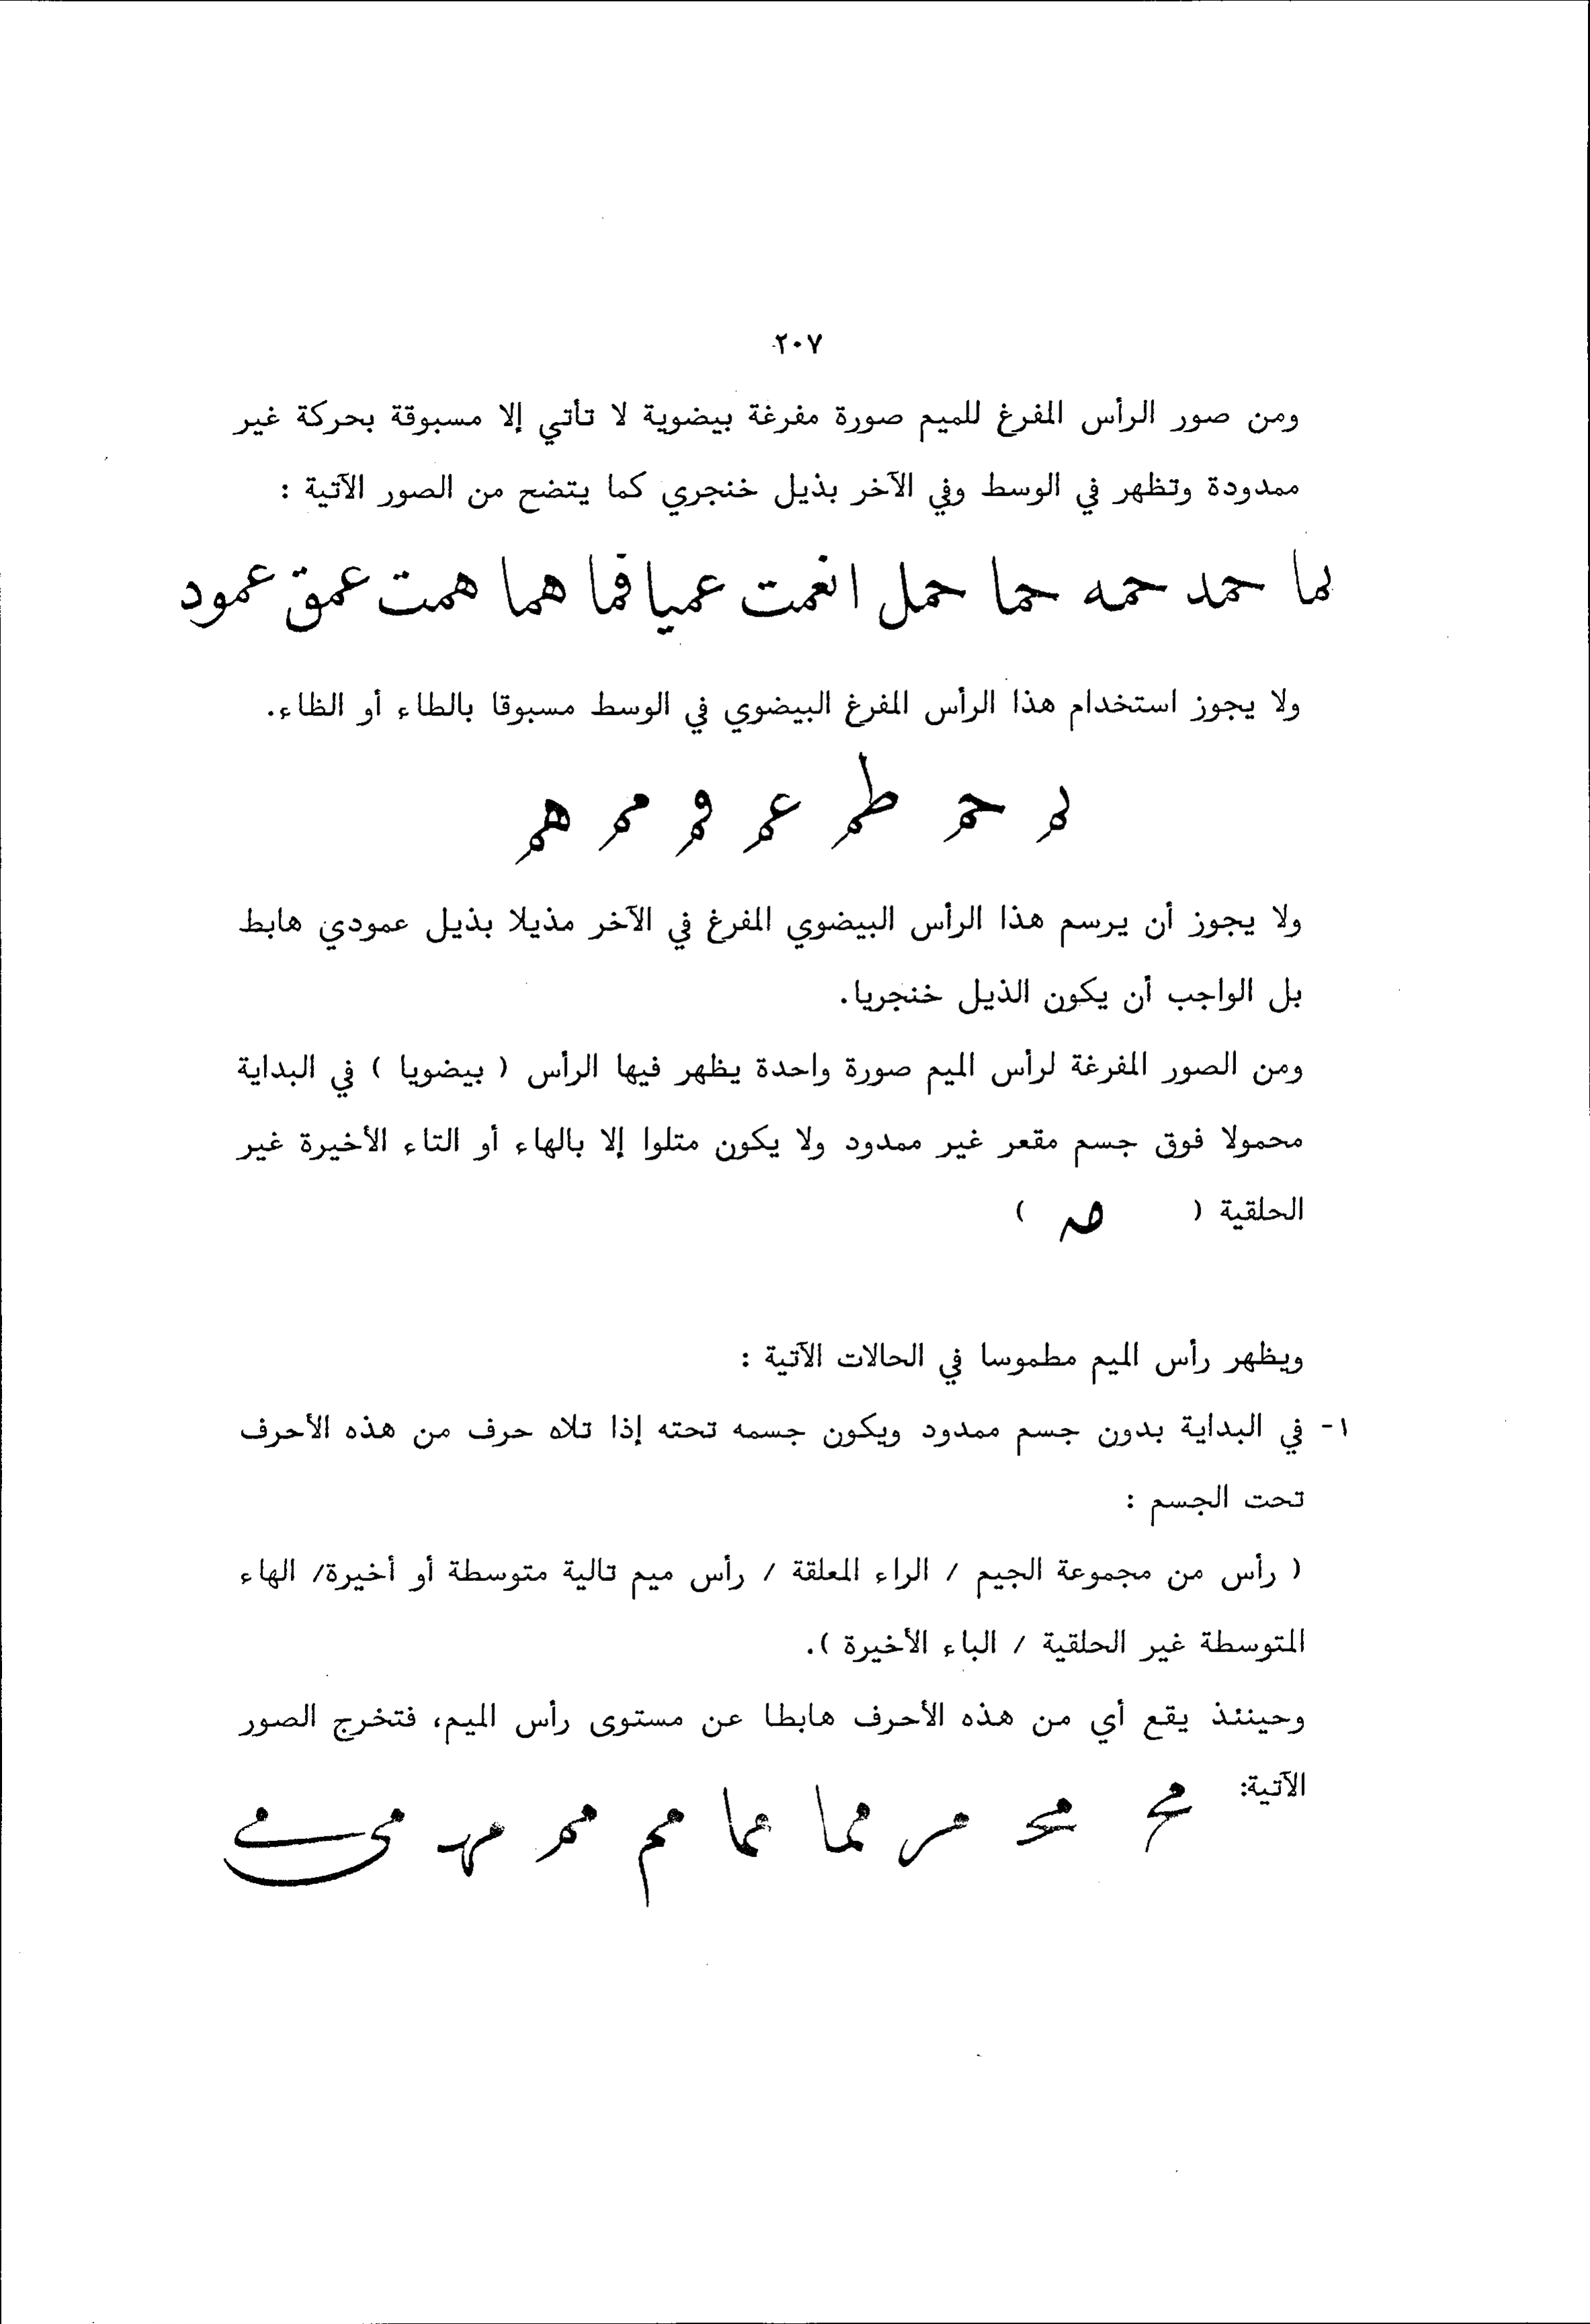 ٢٠٧
ومن صور الرأس المفرغ للميم صورة مفرغة بيضوية لا تأتي إلا مسبوقة بحركة غير
ممدودة وتظهر في الوسط وفي الآخر بذيل خنجري كما يتضح من الصور الآتية :
لما حمد حمه حما حمل انعمت عميا فما هما همت عمق عمود
ولا يجوز استخدام هذا الرأس المفرغ البيضوي في الوسط مسبوقا بالطاء أو الظاء.
لم حم طم عم فم مم هم
ولا يجوز أن يرسم هذا الرأس البيضوي المفرغ في الآخر مذيلا بذيل عمودي هابط
بل الواجب أن يكون الذيل خنجريا.
ومن الصور المفرغة لرأس الميم صورة واحدة يظهر فيها الرأس ( بيضويا ) في البداية
محمولا فوق جسم مقعر غير ممدود ولا يكون متلوا إلا بالهاء أو التاء الأخيرة غير
الحلقية ( مه )
ويظهر رأس الميم مطموسا في الحالات الآتية :
١- في البداية بدون جسم ممدود ويكون جسمه تحته إذا تلاه حرف من هذه الأحرف
تحت الجسم :
( رأس من مجموعة الجيم / الراء المعلقة / رأس ميم تالية متوسطة أو أخيرة/ الهاء
المتوسطة غير الحلقية / الباء الأخيرة ).
وحينئذ يقع أي من هذه الأحرف هابطا عن مستوى رأس الميم، فتخرج الصور
الآتية:
مر مما مما مم مم مهد